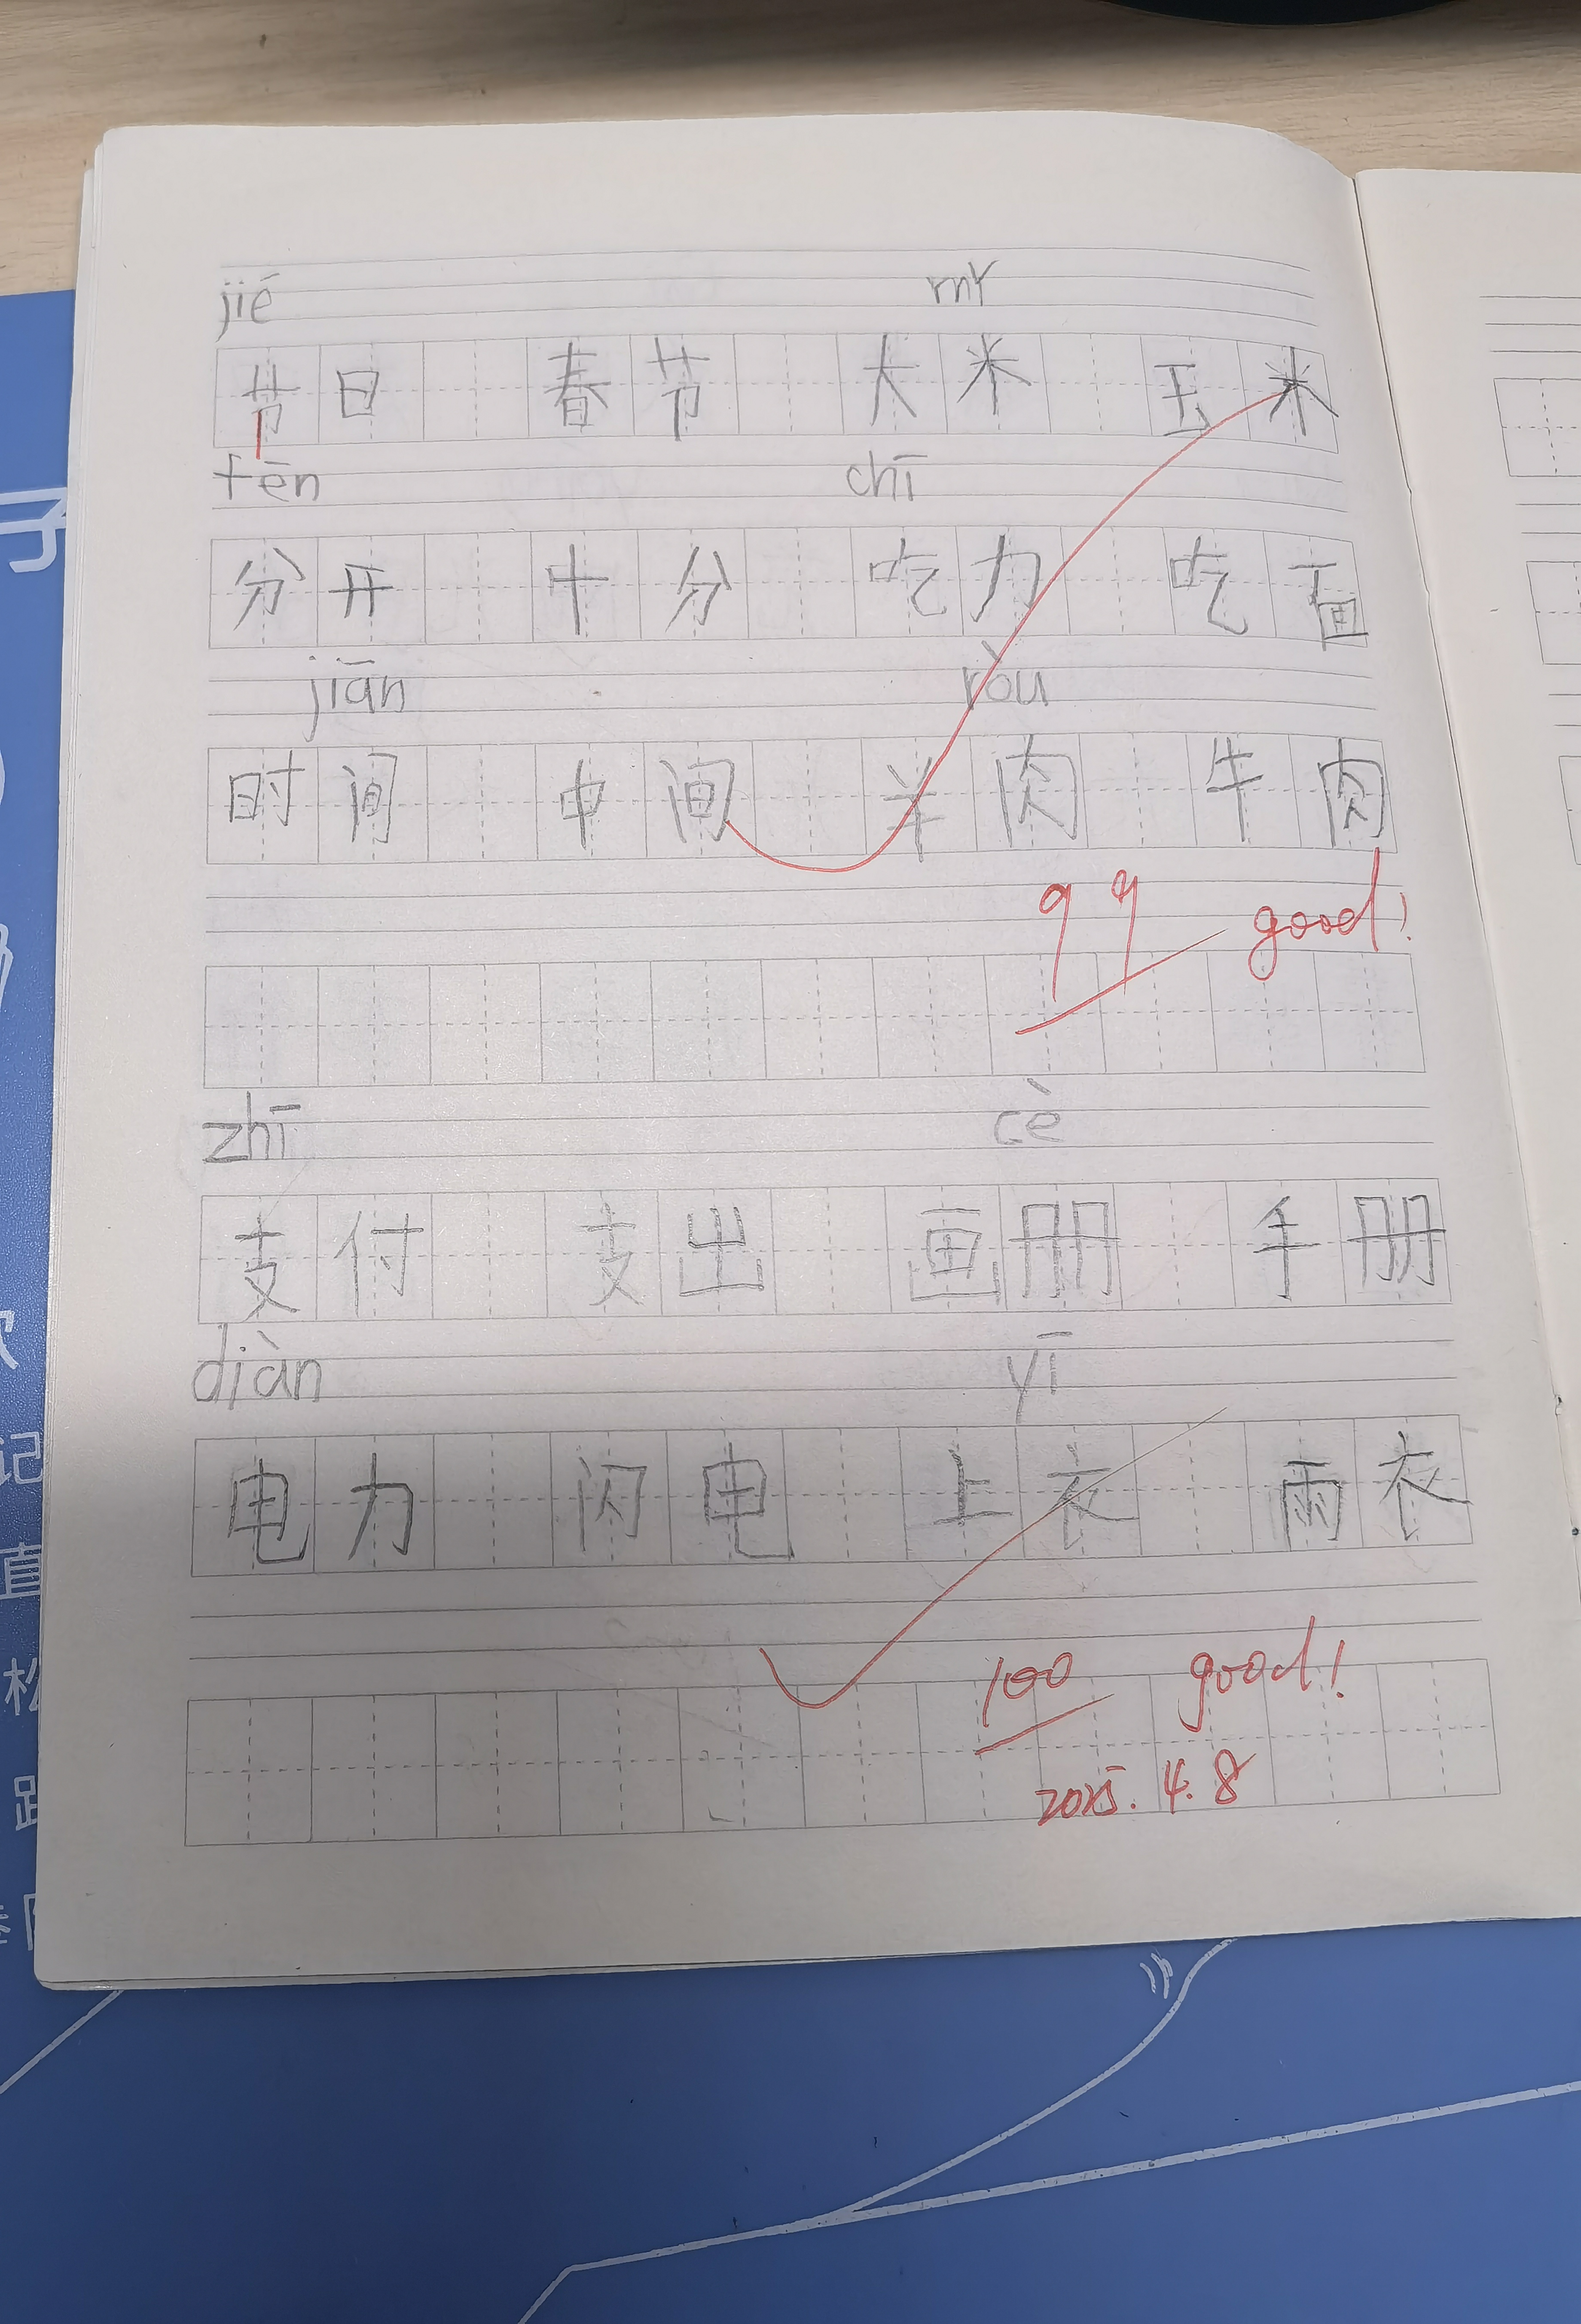 jié mǐ
节日 春节 大米 玉米
fēn chī
分开 十分 吃力 吃面
jiān ròu
时间 中间 羊肉 牛肉
99 good!
zhī cè
支付 支出 画册 手册
diàn yī
电力 闪电 上衣 雨衣
100 good!
2025.4.8
子
记
直
松